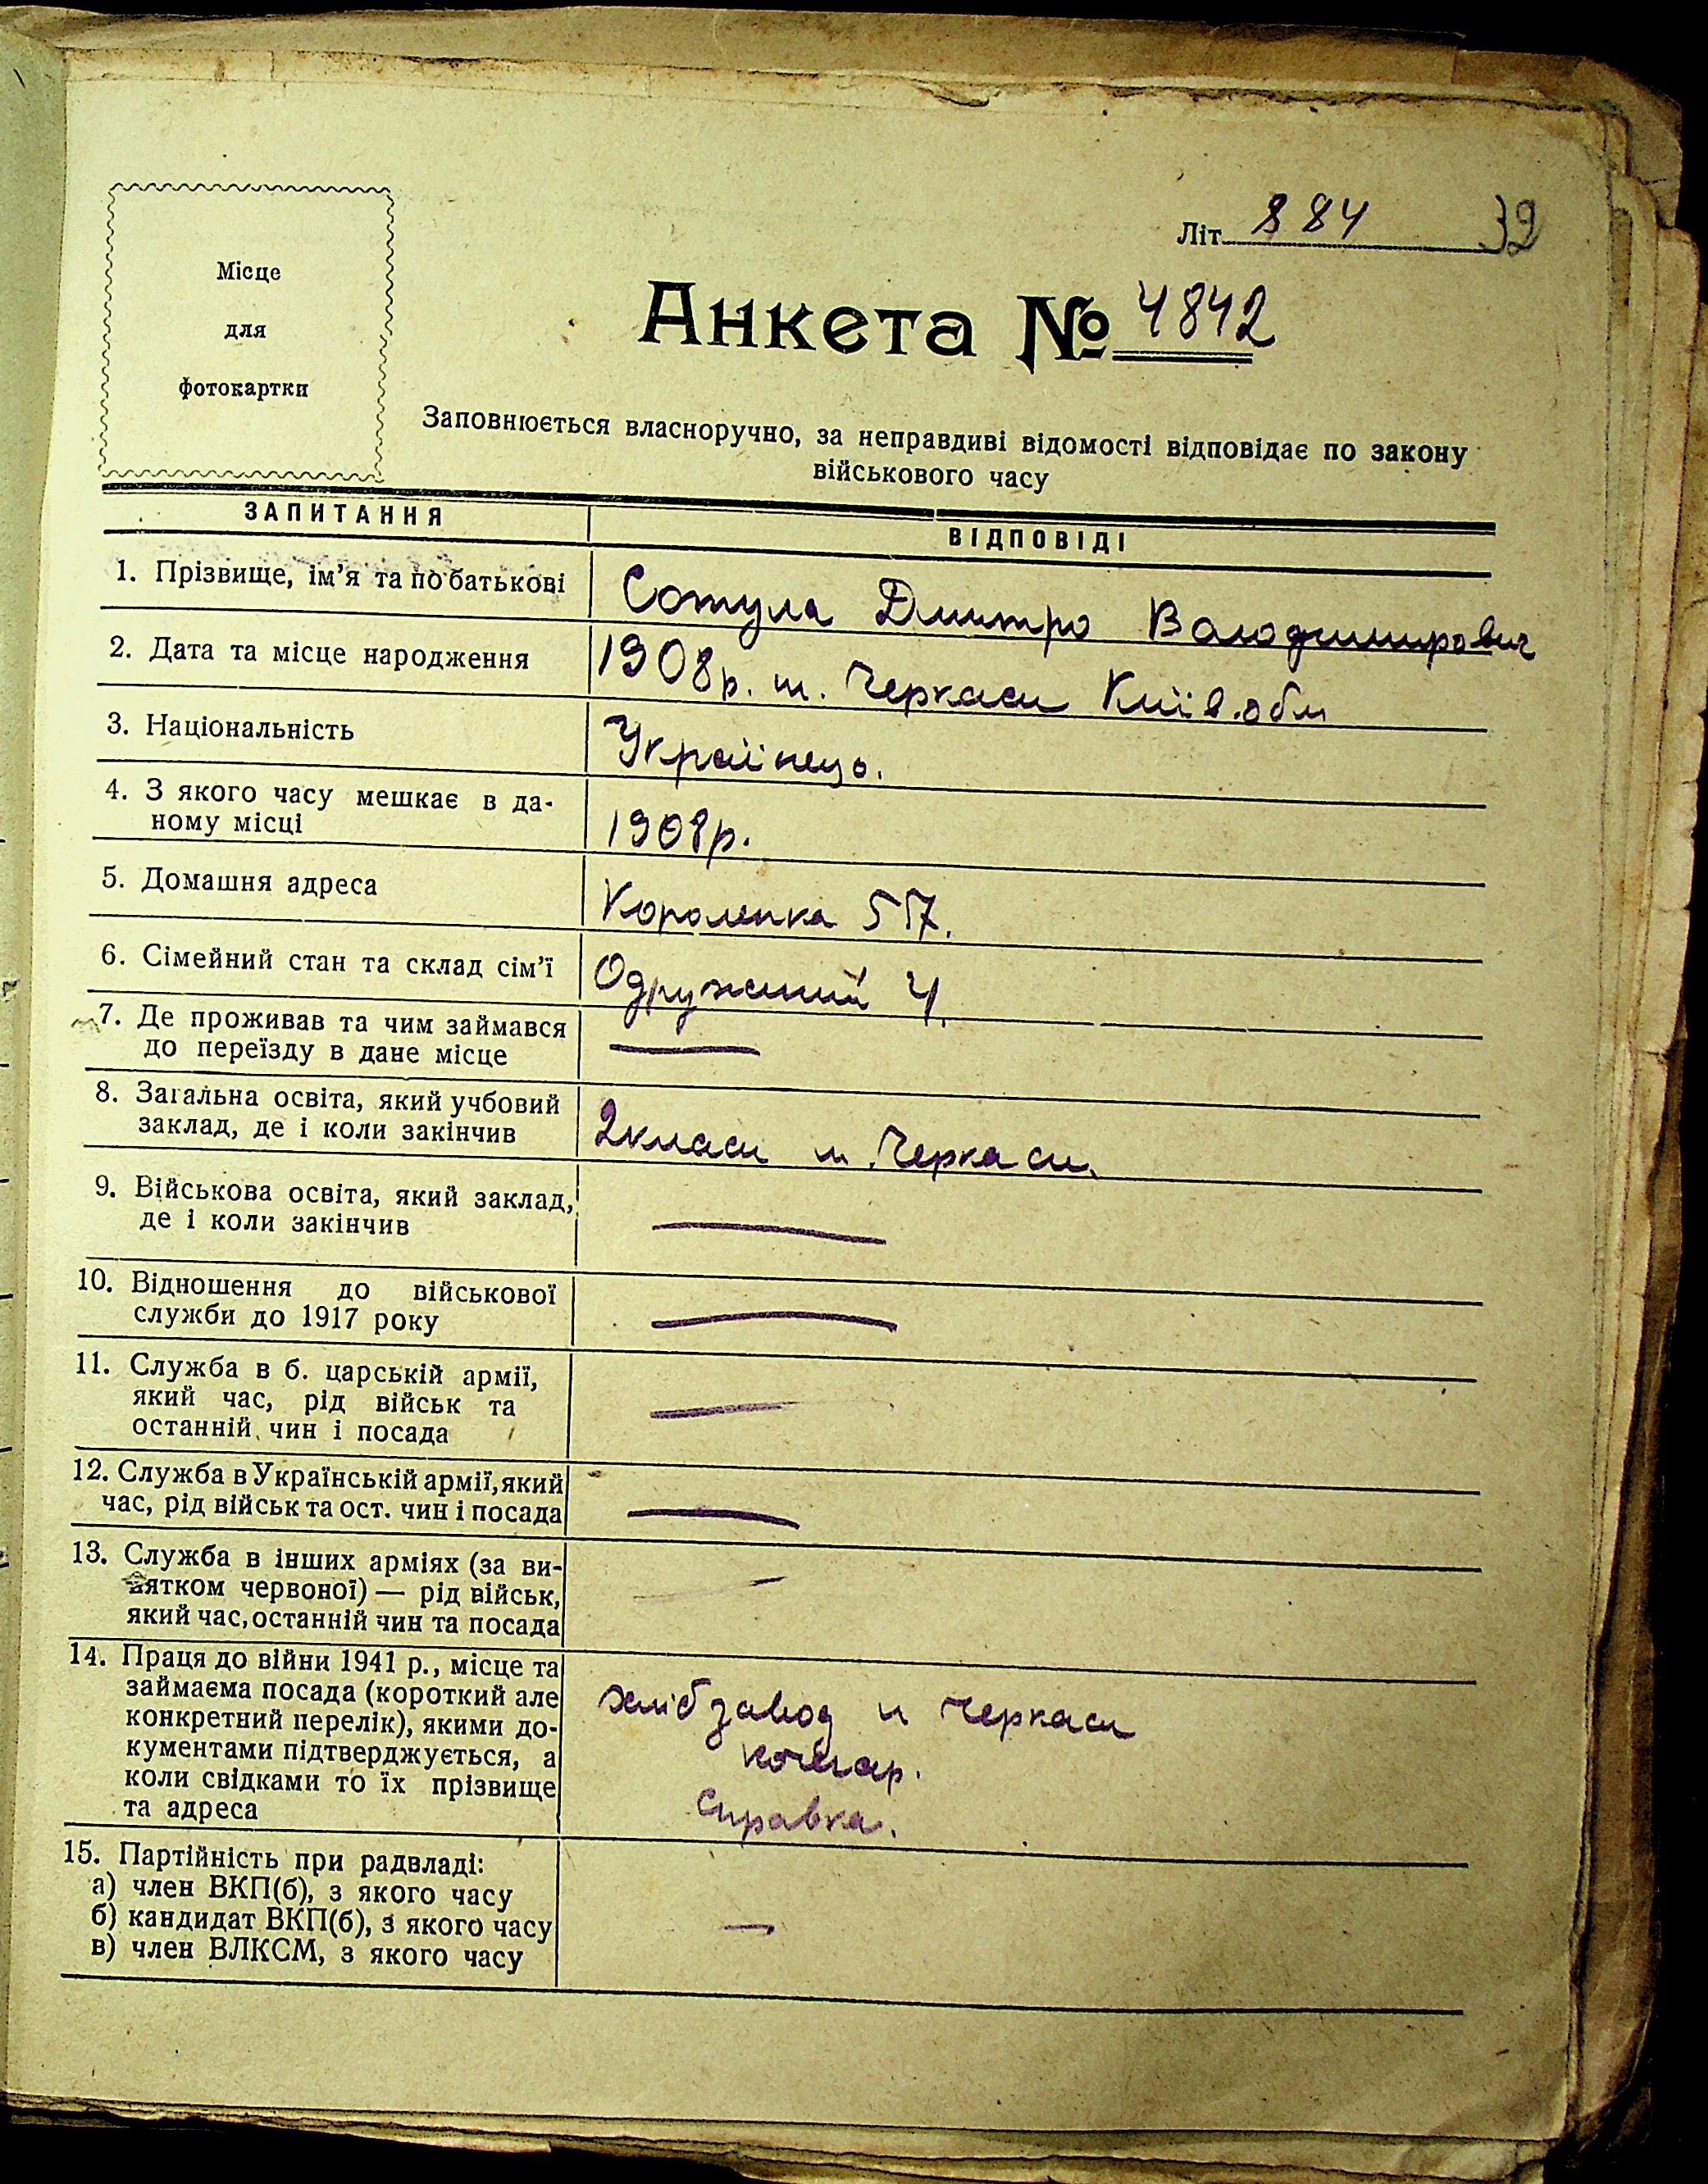 Місце
для
фотокартки
Літ. 884 32
Анкета № 4842
Заповнюється власноручно, за неправдиві відомості відповідає по закону
військового часу
ЗАПИТАННЯ ВІДПОВІДІ
1. Прізвище, ім'я та по батькові Сотула Дмитро Володимирович
2. Дата та місце народження 1908р. м. Черкаси Київ. обл
3. Національність Українець.
4. З якого часу мешкає в да-
ному місці 1908р.
5. Домашня адреса Короленка 57.
6. Сімейний стан та склад сім'ї Одружений 4.
7. Де проживав та чим займався
до переїзду в дане місце —
8. Загальна освіта, який учбовий
заклад, де і коли закінчив 2 класи м. Черкаси.
9. Військова освіта, який заклад,
де і коли закінчив —
10. Відношення до військової
служби до 1917 року —
11. Служба в б. царській армії,
який час, рід військ та
останній чин і посада —
12. Служба в Українській армії, який
час, рід військ та ост. чин і посада —
13. Служба в інших арміях (за ви-
нятком червоної) — рід військ,
який час, останній чин та посада —
14. Праця до війни 1941 р., місце та
займаєма посада (короткий але
конкретний перелік), якими до-
кументами підтверджується, а
коли свідками то їх прізвище
та адреса
хлібзавод м Черкаси
кочегар.
Справка.
15. Партійність при радвладі:
а) член ВКП(б), з якого часу
б) кандидат ВКП(б), з якого часу —
в) член ВЛКСМ, з якого часу